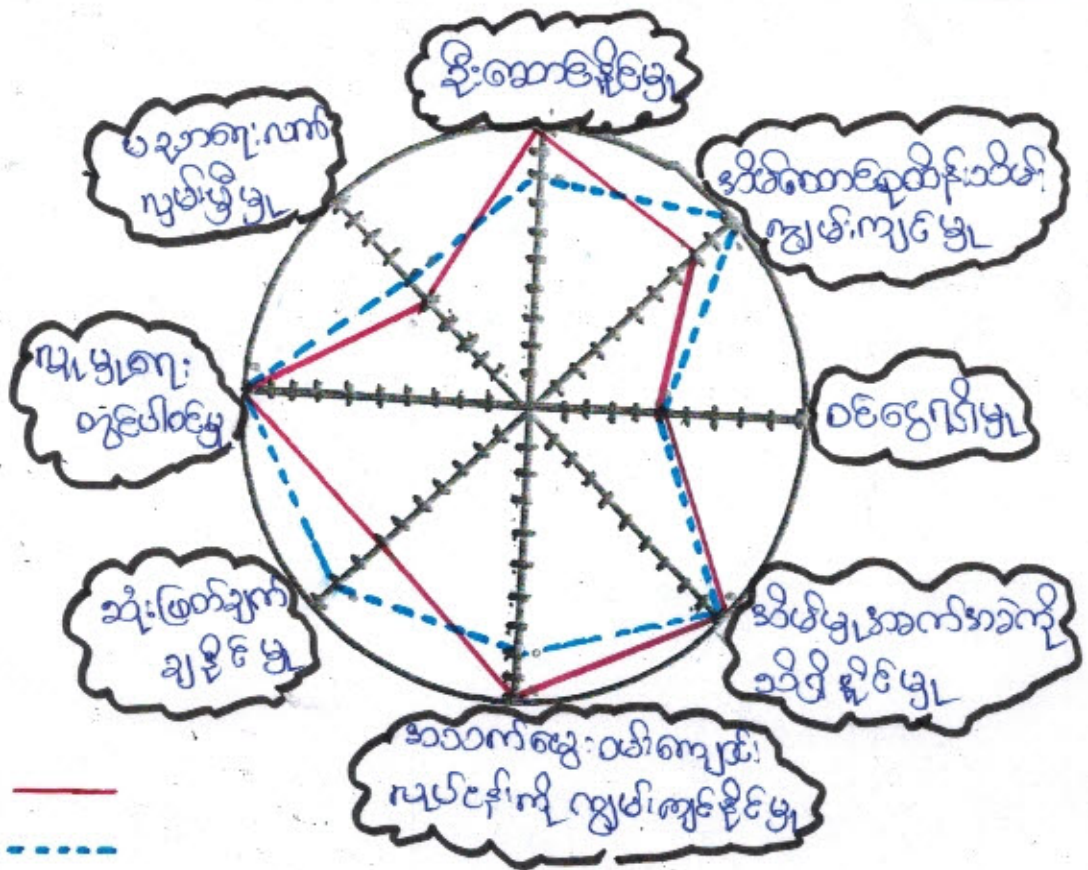 ဦးဆောင်နိုင်မှု
အိမ်ထောင်စုထိန်းသိမ်း
ကျွမ်းကျင်မှု
ဝင်ငွေရရှိမှု
အိမ်မှုအခက်အခဲကို
သိရှိနိုင်မှု
အသက်မွေးဝမ်းကျောင်း
လုပ်ငန်းကို ကျွမ်းကျင်နိုင်မှု
ဆုံးဖြတ်ချက်
ချနိုင်မှု
လူမှုရေး
တွင်ပါဝင်မှု
လွှမ်းမိုးမှု